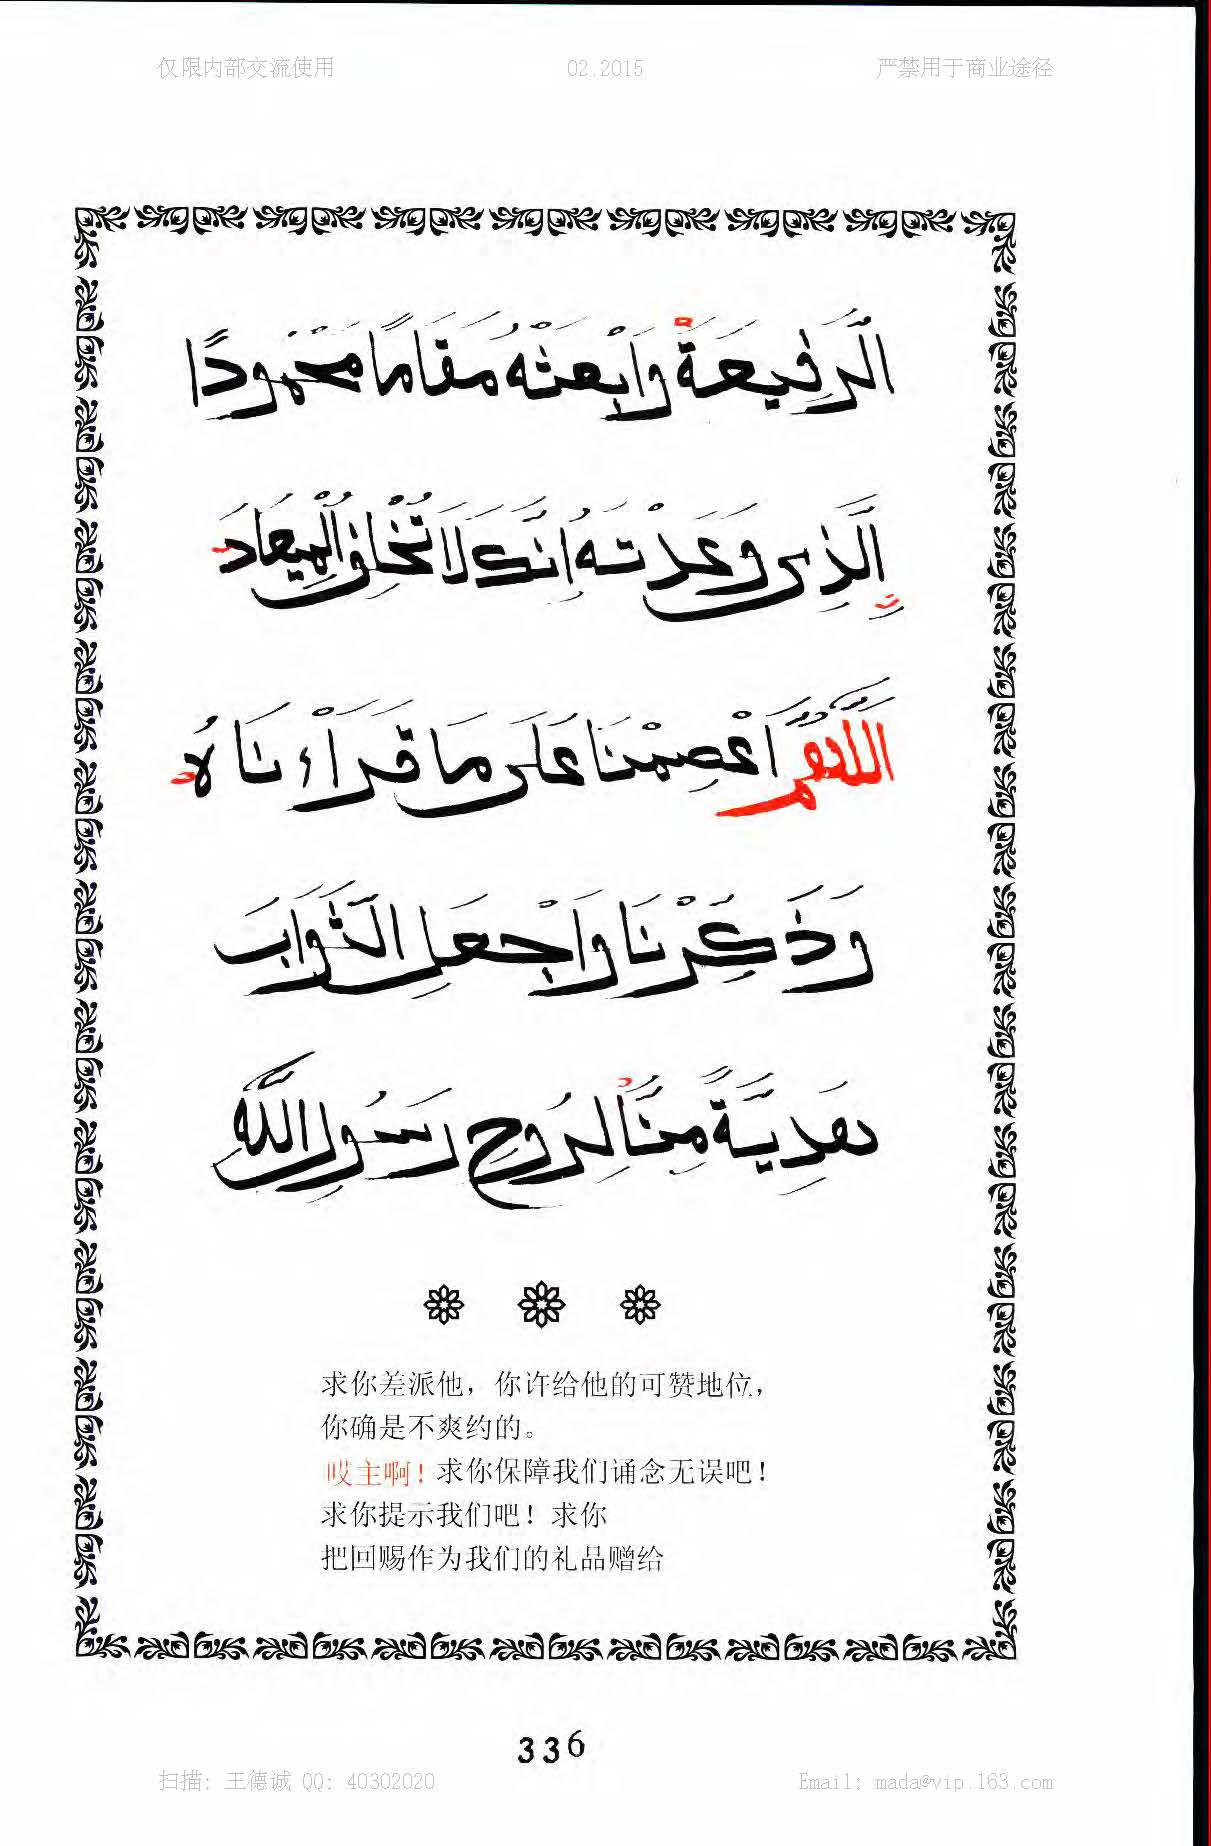 仅限内部交流使用 02.2015 严禁用于商业途径
الرَّفِيعَةَ وَابْعَثْهُ مَقَامًا مَحْمُودًا
الَّذِي وَعَدْتَهُ إِنَّكَ لَا تُخْلِفُ الْمِيعَادَ
اللَّهُمَّ اعْصِمْنَا عَلَى مَا قَرَأْنَاهُ
وَذَكِّرْنَا وَاجْعَلِ الثَّوَابَ
هَدِيَّةً مِنَّا لِرُوحِ رَسُولِ اللَّهِ
求你差派他，你许给他的可赞地位，
你确是不爽约的。
哎主啊！求你保障我们诵念无误吧！
求你提示我们吧！求你
把回赐作为我们的礼品赠给
336
扫描: 王德诚 QQ: 40302020 Email: mada@vip.163.com